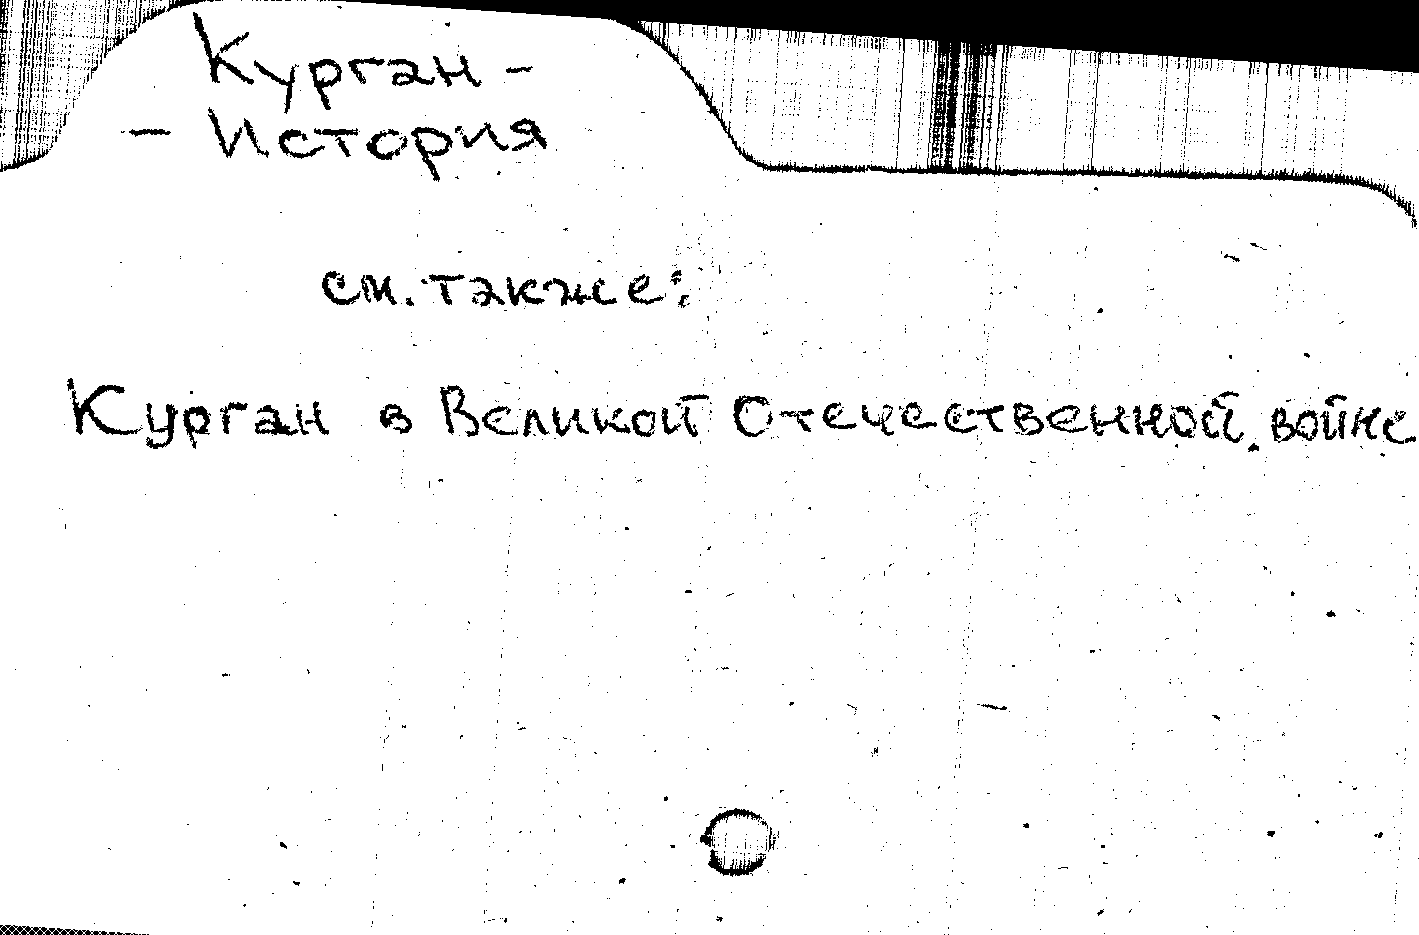 Курган -
- История
см. также:
Курган в Великой Отечественной войне